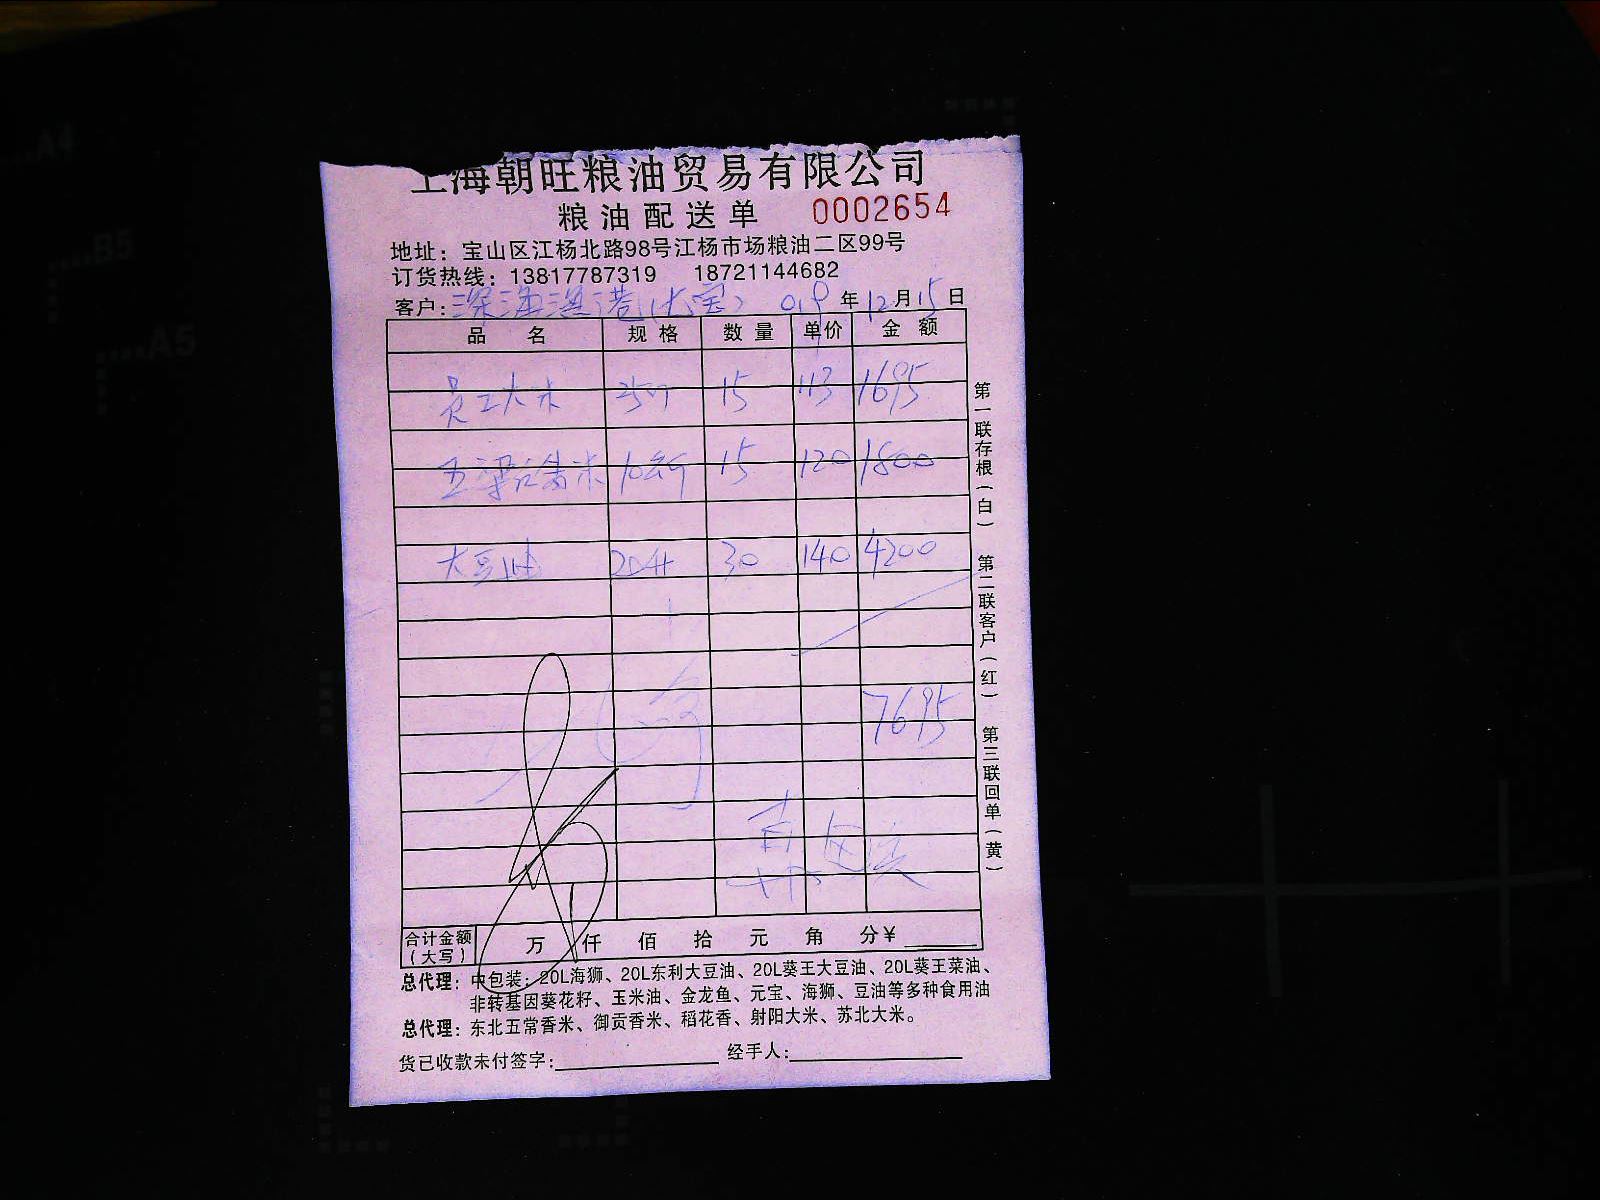 上海朝旺粮油贸易有限公司
粮油配送单 0002654
地址：宝山区江杨北路98号江杨市场粮油二区99号
订货热线：13817787319 18721144682
客户：深海渔港(大宝) 019年12月15日
品名 规格 数量 单价 金额
员工大米 25 15 113 1695
五梁 米 10公斤 15 120 1800
大豆油 20升 30 140 4200
7695
合计金额（大写） 万 仟 佰 拾 元 角 分￥
总代理：中包装：20L海狮、20L东利大豆油、20L葵王大豆油、20L葵王菜油、
非转基因葵花籽、玉米油、金龙鱼、元宝、海狮、豆油等多种食用油
总代理：东北五常香米、御贡香米、稻花香、射阳大米、苏北大米。
货已收款未付签字： 经手人：
第一联存根（白） 第二联客户（红） 第三联回单（黄）
A4
B5
A5